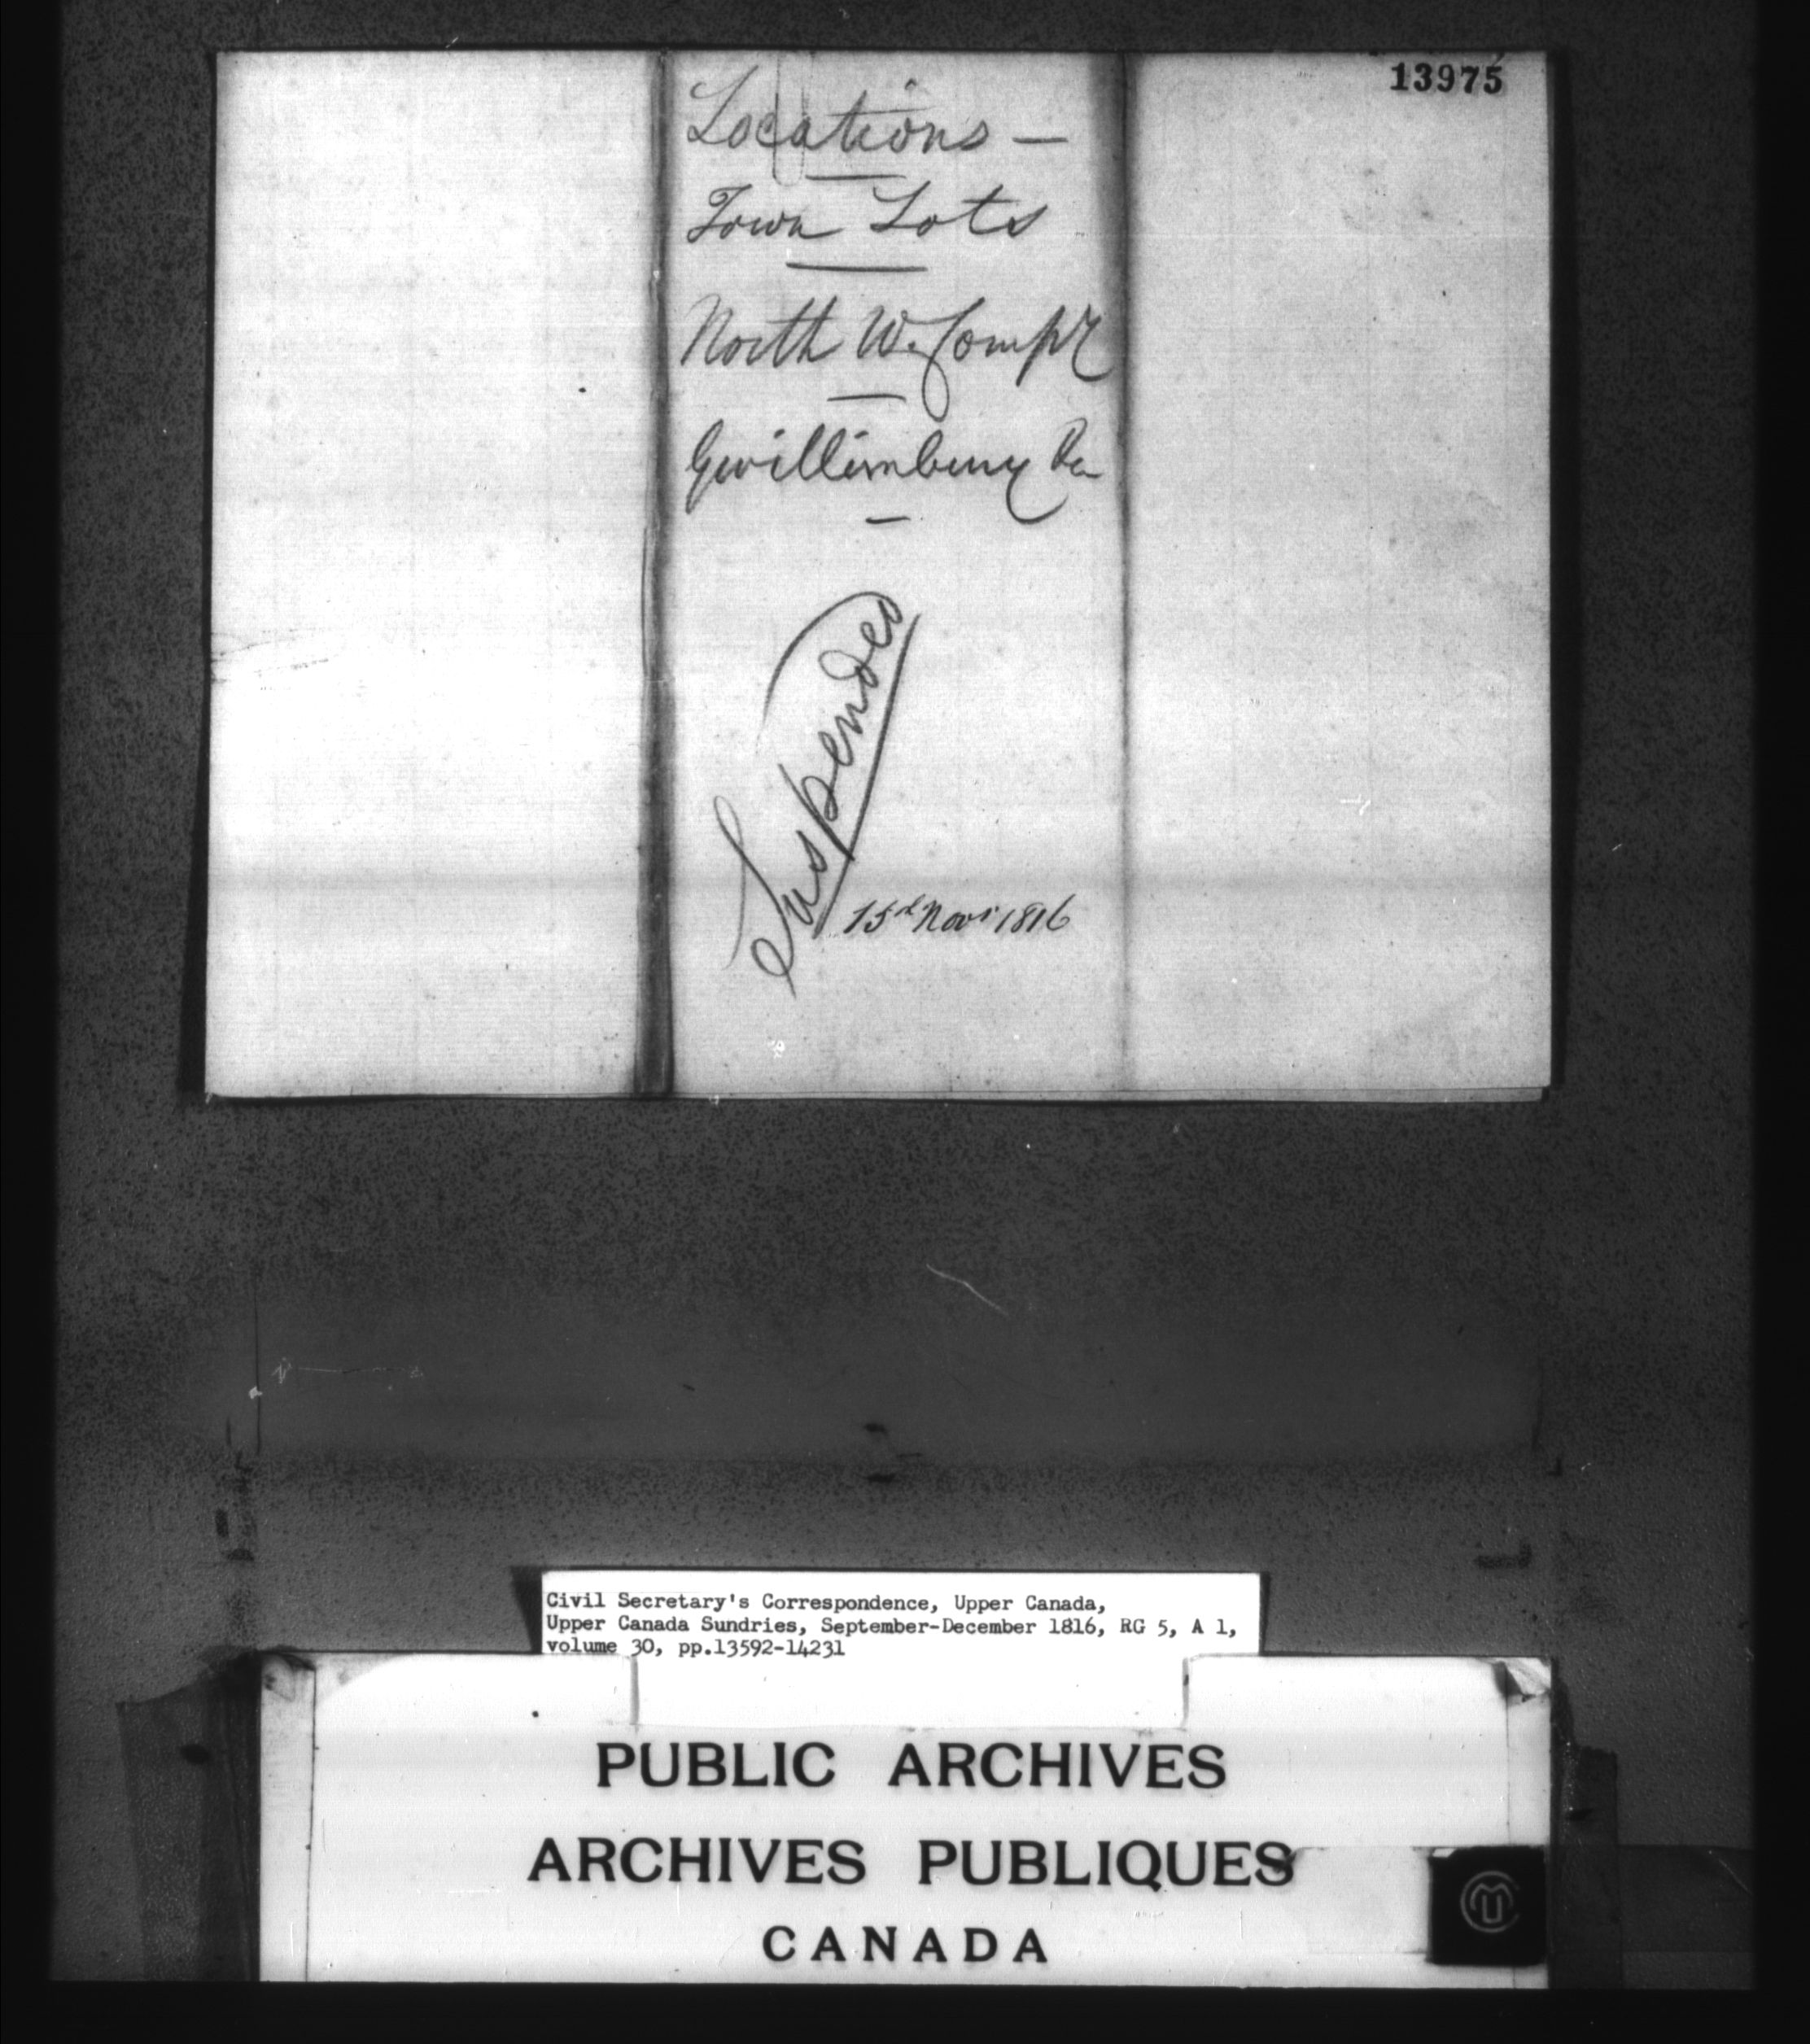 13975
Locations —
Town Lots
North W. Compy
Gwillimbury
Suspended
15th Novr 1816
Civil Secretary's Correspondence, Upper Canada,
Upper Canada Sundries, September-December 1816, RG 5, A 1,
volume 30, pp.13592-14231
PUBLIC ARCHIVES
ARCHIVES PUBLIQUES
CANADA